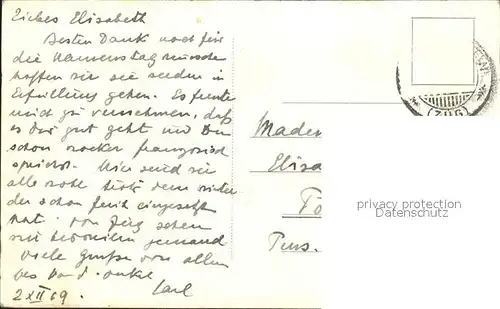 Liebes Elisabeth
Besten Dank noch für
die Namenstag wünsche
hoffen wir sie werden in
Erfüllung gehen. Es freute
mich zu vernehmen, daß
es dir gut geht und Du
schon wacker französisch
sprichst. Hier sind wir
alle wohl trotz dem Winter
der schon früh eingesetzt
hat. von Zug sehen
wir bisweilen jemand
viele Grüße von allen
bes. von d. onkel
Karl
2 XII 69.
(ZUG)
Madem
Elisa
Pens.
privacy protection
Datenschutz